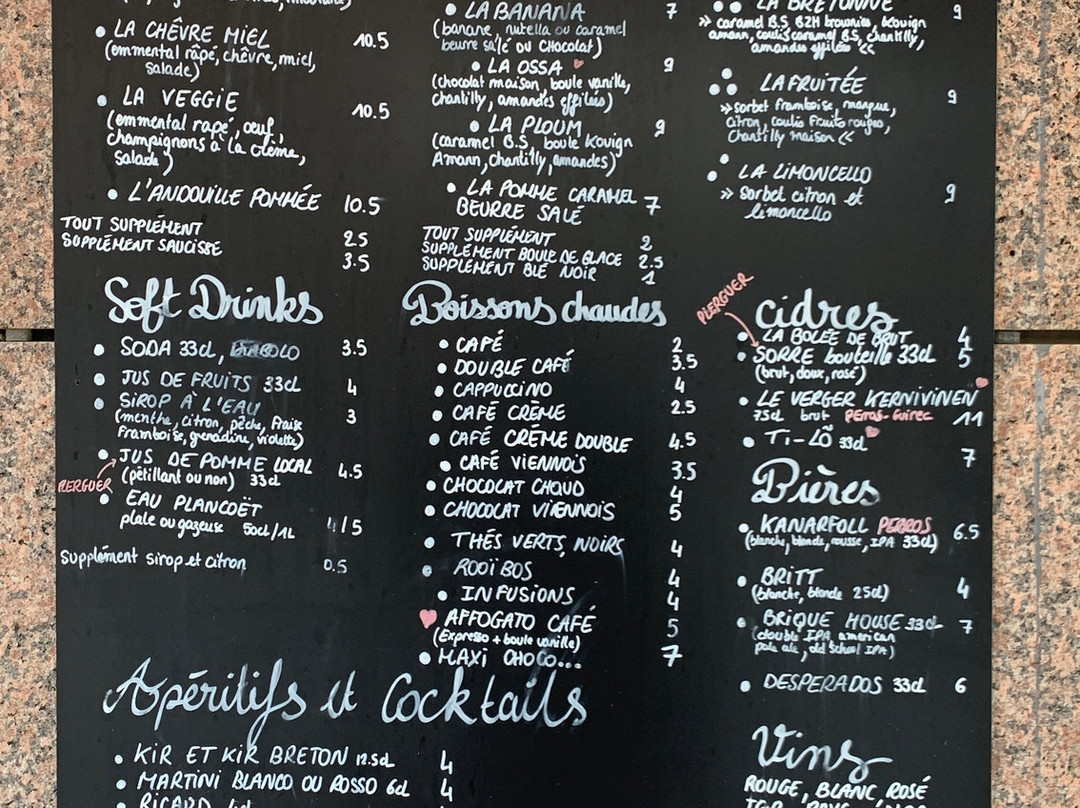 LA CHÊVRE MIEL 10.5
(emmental râpé, chêvre, miel,
salade)
LA VEGGIE 10.5
(emmental rapé, oeuf,
champignons à la crème,
salade)
L'ANDOUILLE POMMÉE 10.5
TOUT SUPPLÉMENT 2.5
SUPPLÉMENT SAUCISSE 3.5
LA BANANA 7
(banane, nutella ou caramel
beurre salé ou CHOCOLAT)
LA OSSA 9
(chocolat maison, boule vanille,
chantilly, amandes effilées)
LA PLOUM 9
(caramel B.S, boule Kouign
Amann, chantilly, amandes)
LA POMME CARAMEL
BEURRE SALÉ 7
TOUT SUPPLÉMENT 2
SUPPLÉMENT BOULE DE GLACE 2.5
SUPPLÉMENT BLÉ NOIR 1
LA BRETONNE 9
>> caramel B.S, BZH brownies, kouign
amann, coulis caramel B.S, chantilly,
amandes effilées <<
LA FRUITÉE 9
>> sorbet framboise, mangue,
citron, coulis fruits rouges,
chantilly maison <<
LA LIMONCELLO 9
>> sorbet citron et
limoncello
Soft Drinks
SODA 33cl, DIABOLO 3.5
JUS DE FRUITS 33cl 4
SIROP À L'EAU 3
(menthe, citron, pêche, fraise
framboise, grenadine, violette)
JUS DE POMME LOCAL 4.5
(pétillant ou non) 33cl
PLERGUER
EAU PLANCOËT
plate ou gazeuse 50cl/1L 4/5
Supplément sirop et citron 0.5
Boissons chaudes
CAFÉ 2
DOUBLE CAFÉ 3.5
CAPPUCCINO 4
CAFÉ CRÈME 2.5
CAFÉ CRÈME DOUBLE 4.5
CAFÉ VIENNOIS 3.5
CHOCOLAT CHAUD 4
CHOCOLAT VIENNOIS 5
THÉS VERTS, NOIRS 4
ROOÏBOS 4
INFUSIONS 4
AFFOGATO CAFÉ 5
(Expresso + boule vanille)
MAXI CHOCO... 7
PLERGUER
cidres
LA BOLÉE DE BRUT 4
SORRE bouteille 33cl 5
(brut, doux, rosé)
LE VERGER KERNIVINEN
75cl brut PERROS-Guirec 11
TI-LÔ 33cl 7
Bières
KANARFOLL PERROS 6.5
(blanche, blonde, rousse, IPA 33cl)
BRITT 4
(blanche, blonde 25cl)
BRIQUE HOUSE 33cl 7
(double IPA, american
pale ale, old School IPA)
DESPERADOS 33cl 6
Apéritifs et Cocktails
KIR ET KIR BRETON 12.5cl 4
MARTINI BLANCO OU ROSSO 6cl 4
RICARD
Vins
ROUGE, BLANC, ROSÉ